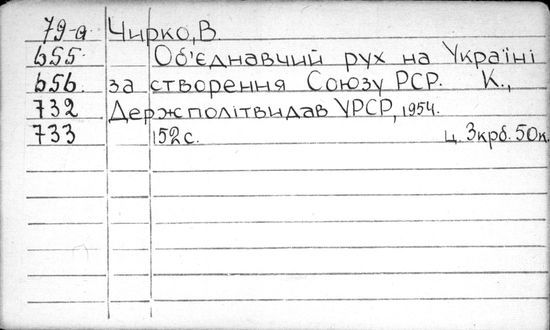 79-а Чирко, В
655. Об'єднавчий рух на Україні
656. за створення Союзу РСР. К.,
732 Держполітвидав УРСР, 1954.
733 152 с. ц. 3крб. 50к.